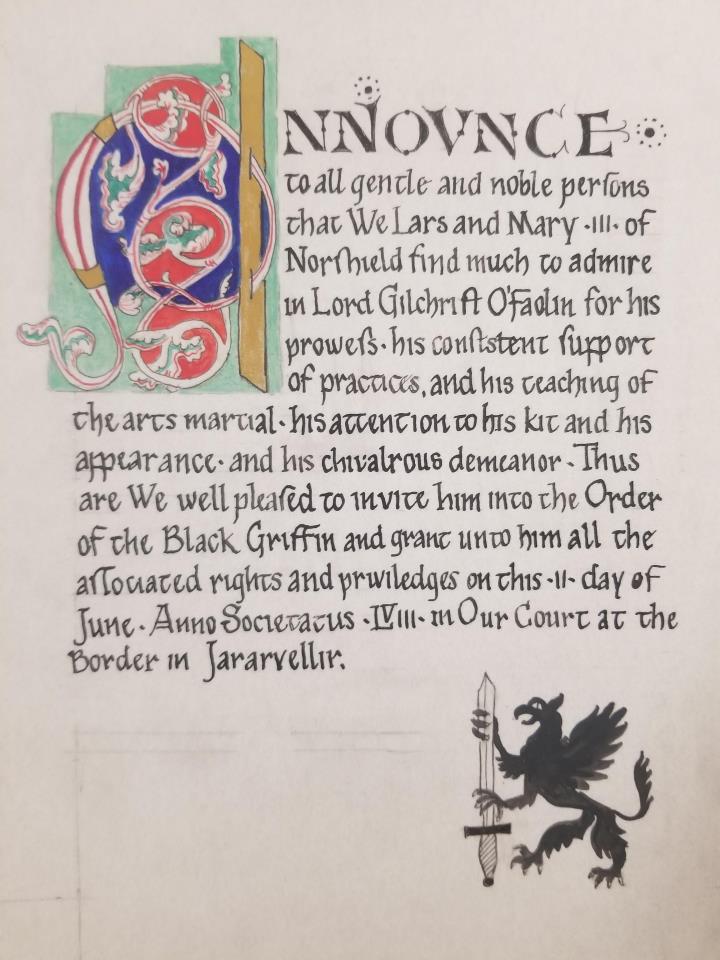 ANNOVNCE
to all gentle and noble perſons
that We Lars and Mary ·III· of
Norſhield find much to admire
in Lord Gilchriſt O'Faolin for his
proweſs · his conſistent ſupport
of practices, and his teaching of
the arts martial · his attention to his kit and his
appearance · and his chivalrous demeanor · Thus
are We well pleaſed to invite him into the Order
of the Black Griffin and grant unto him all the
aſſociated rights and priviledges on this ·II· day of
June · Anno Societatus ·LVIII· in Our Court at the
Border in Jararvellir.